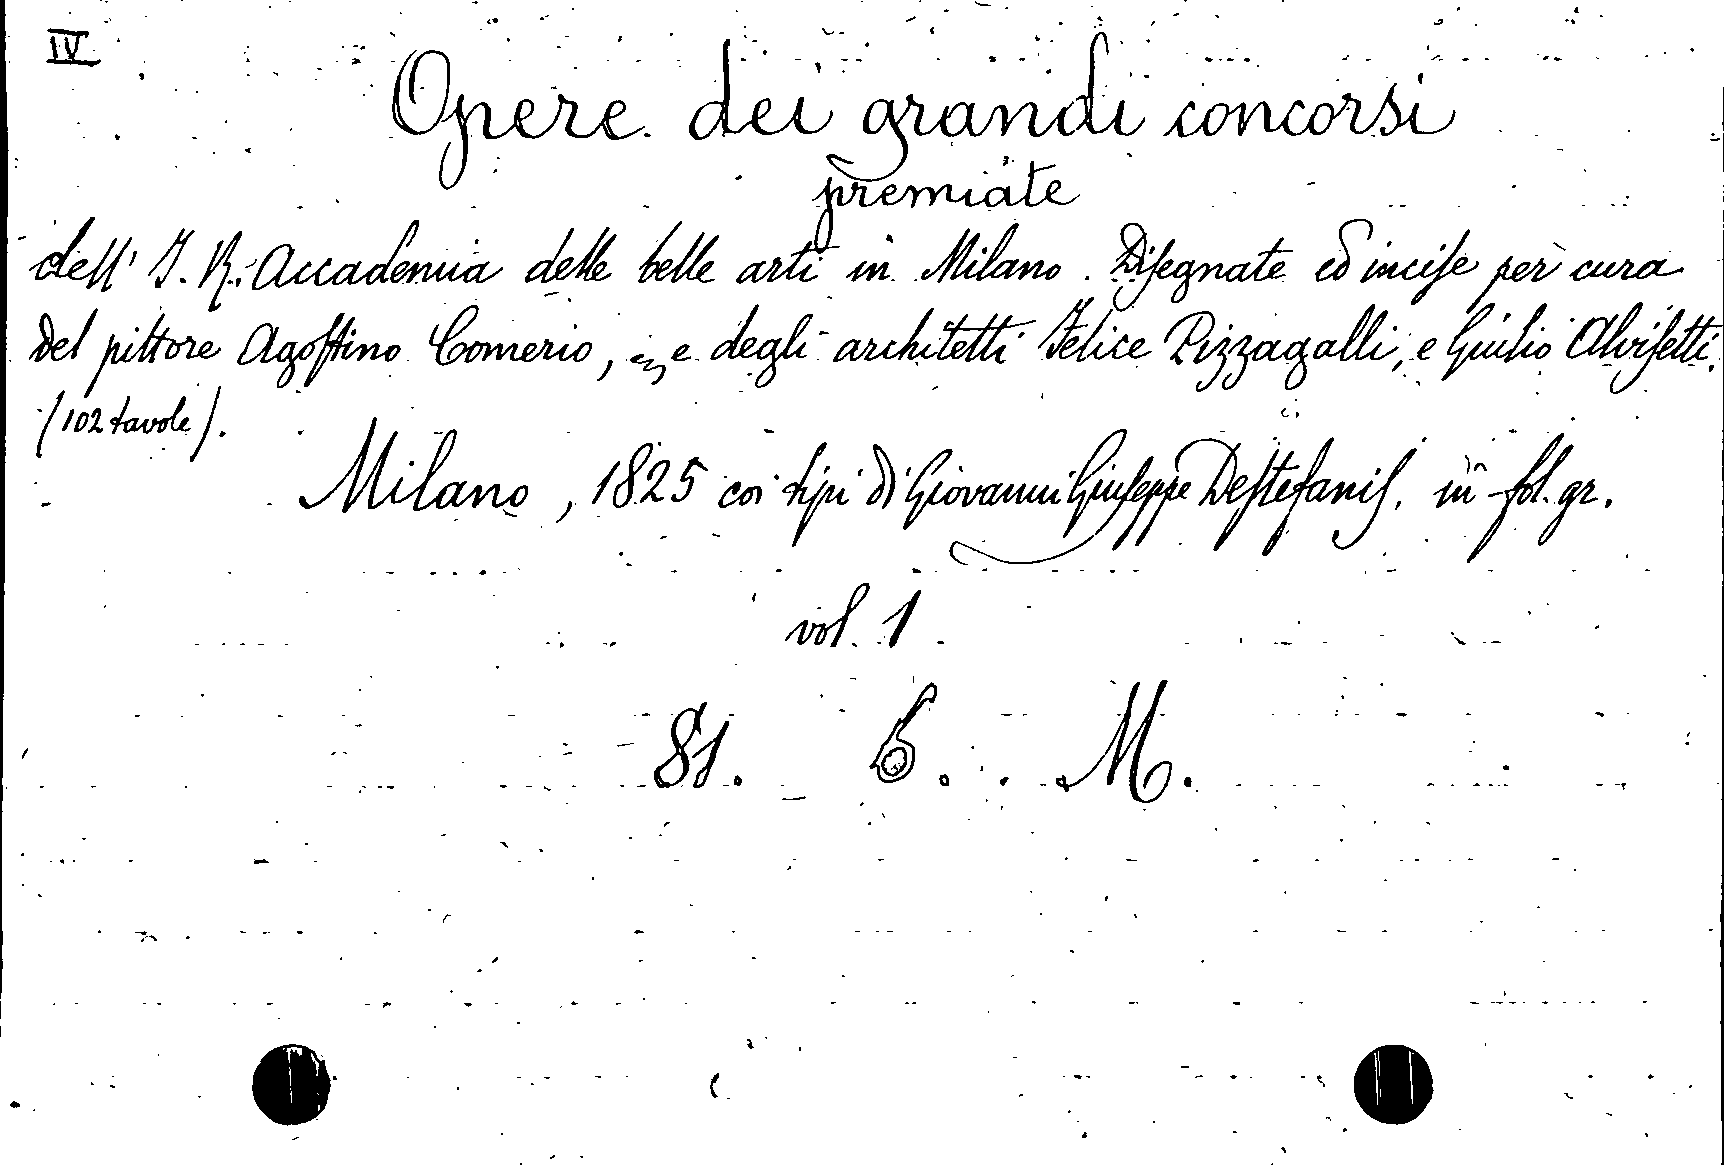 IV
Opere dei grandi concorsi
premiate
dell' I. R. Accademia delle belle arti in Milano. Disegnate ed incise per cura
del pittore Agostino Comerio, e degli architetti Felice Pizzagalli, e Giulio Alvisetti.
(102 tavole).
Milano, 1825 coi tipi di Giovanni Giuseppe Destefanis. in-fol. gr.
vol. 1
81. 6. M.